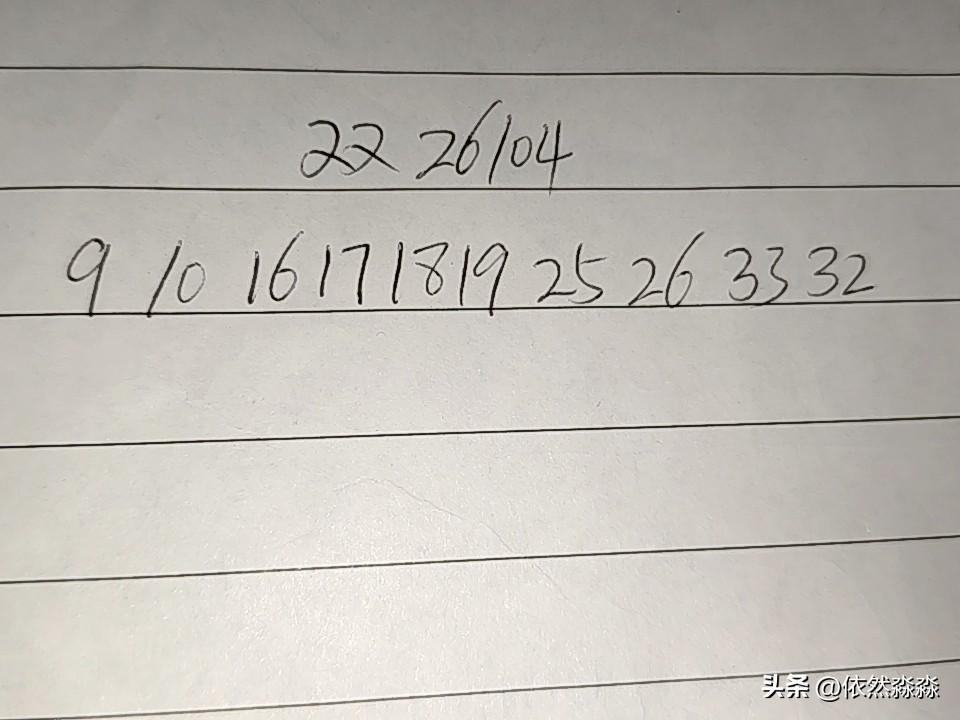 22 26104
9 10 16 17 18 19 25 26 33 32
头条 @依然淼淼